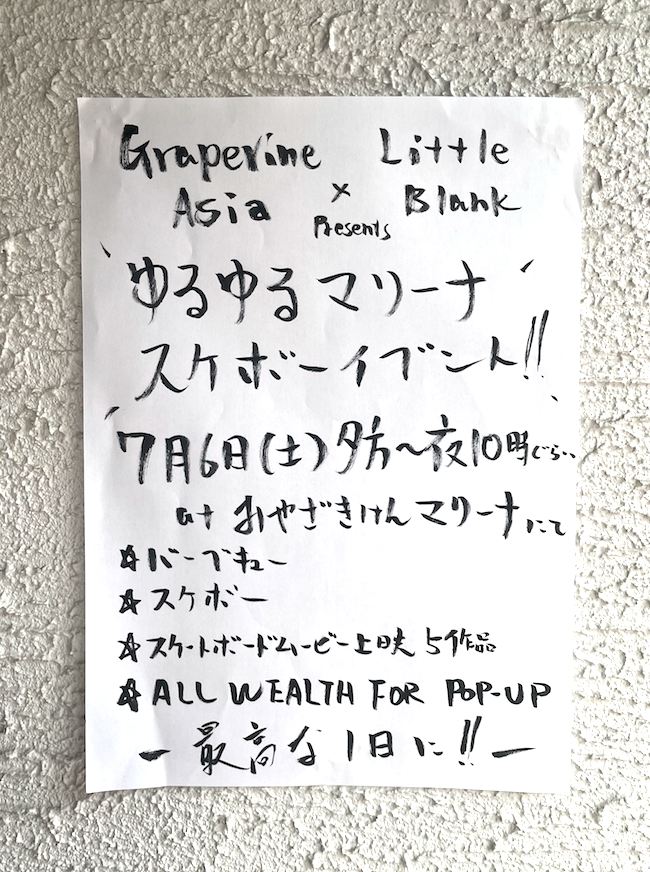 Grapevine Little
Asia × Blank
Presents
ゆるゆるマリーナ
スケボーイブント!!
7月6日(土)夕方〜夜10時ぐらい
at みやざきけんマリーナにて
☆バーブキュー
☆スケボー
☆スケートボードムービー上映 5作品
☆ALL WEALTH FOR POP-UP
ー最高な1日に!!ー